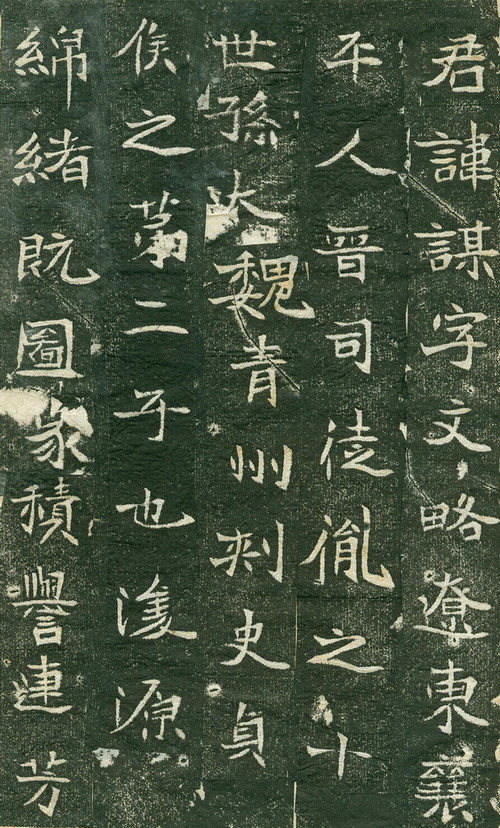 君諱謀字文略遼東襄
平人晉司徒胤之十
世孫大魏青州刺史貞
侯之第二子也濬源
綿緒既圖家積譽連芳